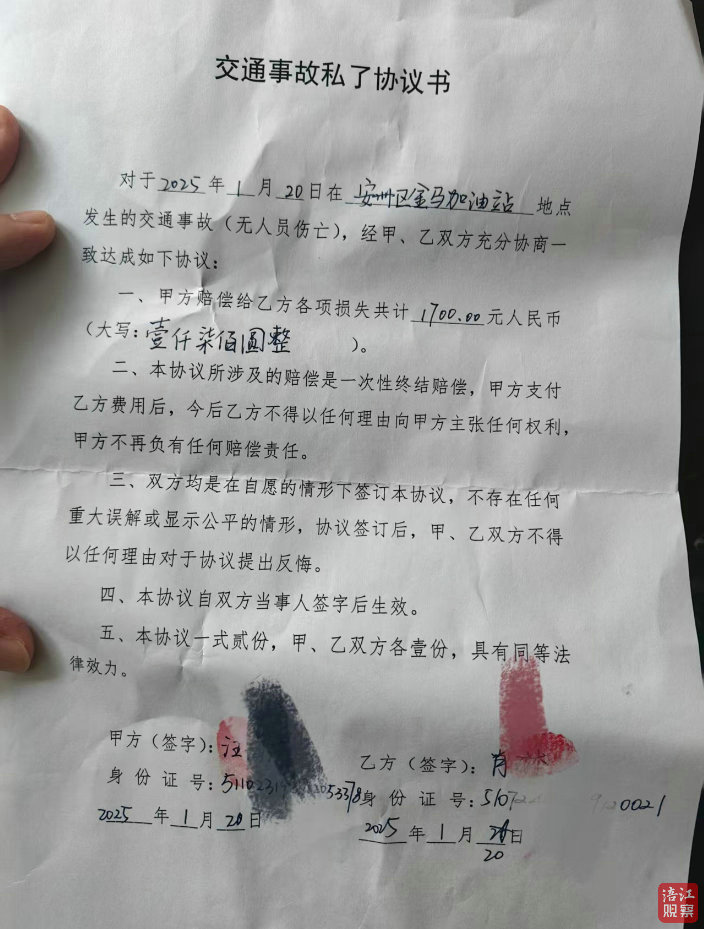 交通事故私了协议书
对于2025年1月20日在安州区金马加油站地点
发生的交通事故（无人员伤亡），经甲、乙双方充分协商一
致达成如下协议：
一、甲方赔偿给乙方各项损失共计1700.00元人民币
（大写：壹仟柒佰圆整）。
二、本协议所涉及的赔偿是一次性终结赔偿，甲方支付
乙方费用后，今后乙方不得以任何理由向甲方主张任何权利，
甲方不再负有任何赔偿责任。
三、双方均是在自愿的情形下签订本协议，不存在任何
重大误解或显示公平的情形，协议签订后，甲、乙双方不得
以任何理由对于协议提出反悔。
四、本协议自双方当事人签字后生效。
五、本协议一式贰份，甲、乙双方各壹份，具有同等法
律效力。
甲方（签字）：
身份证号：
2025年1月20日
乙方（签字）：肖
身份证号：5107 0021
2025年1月
20日
涪江观察